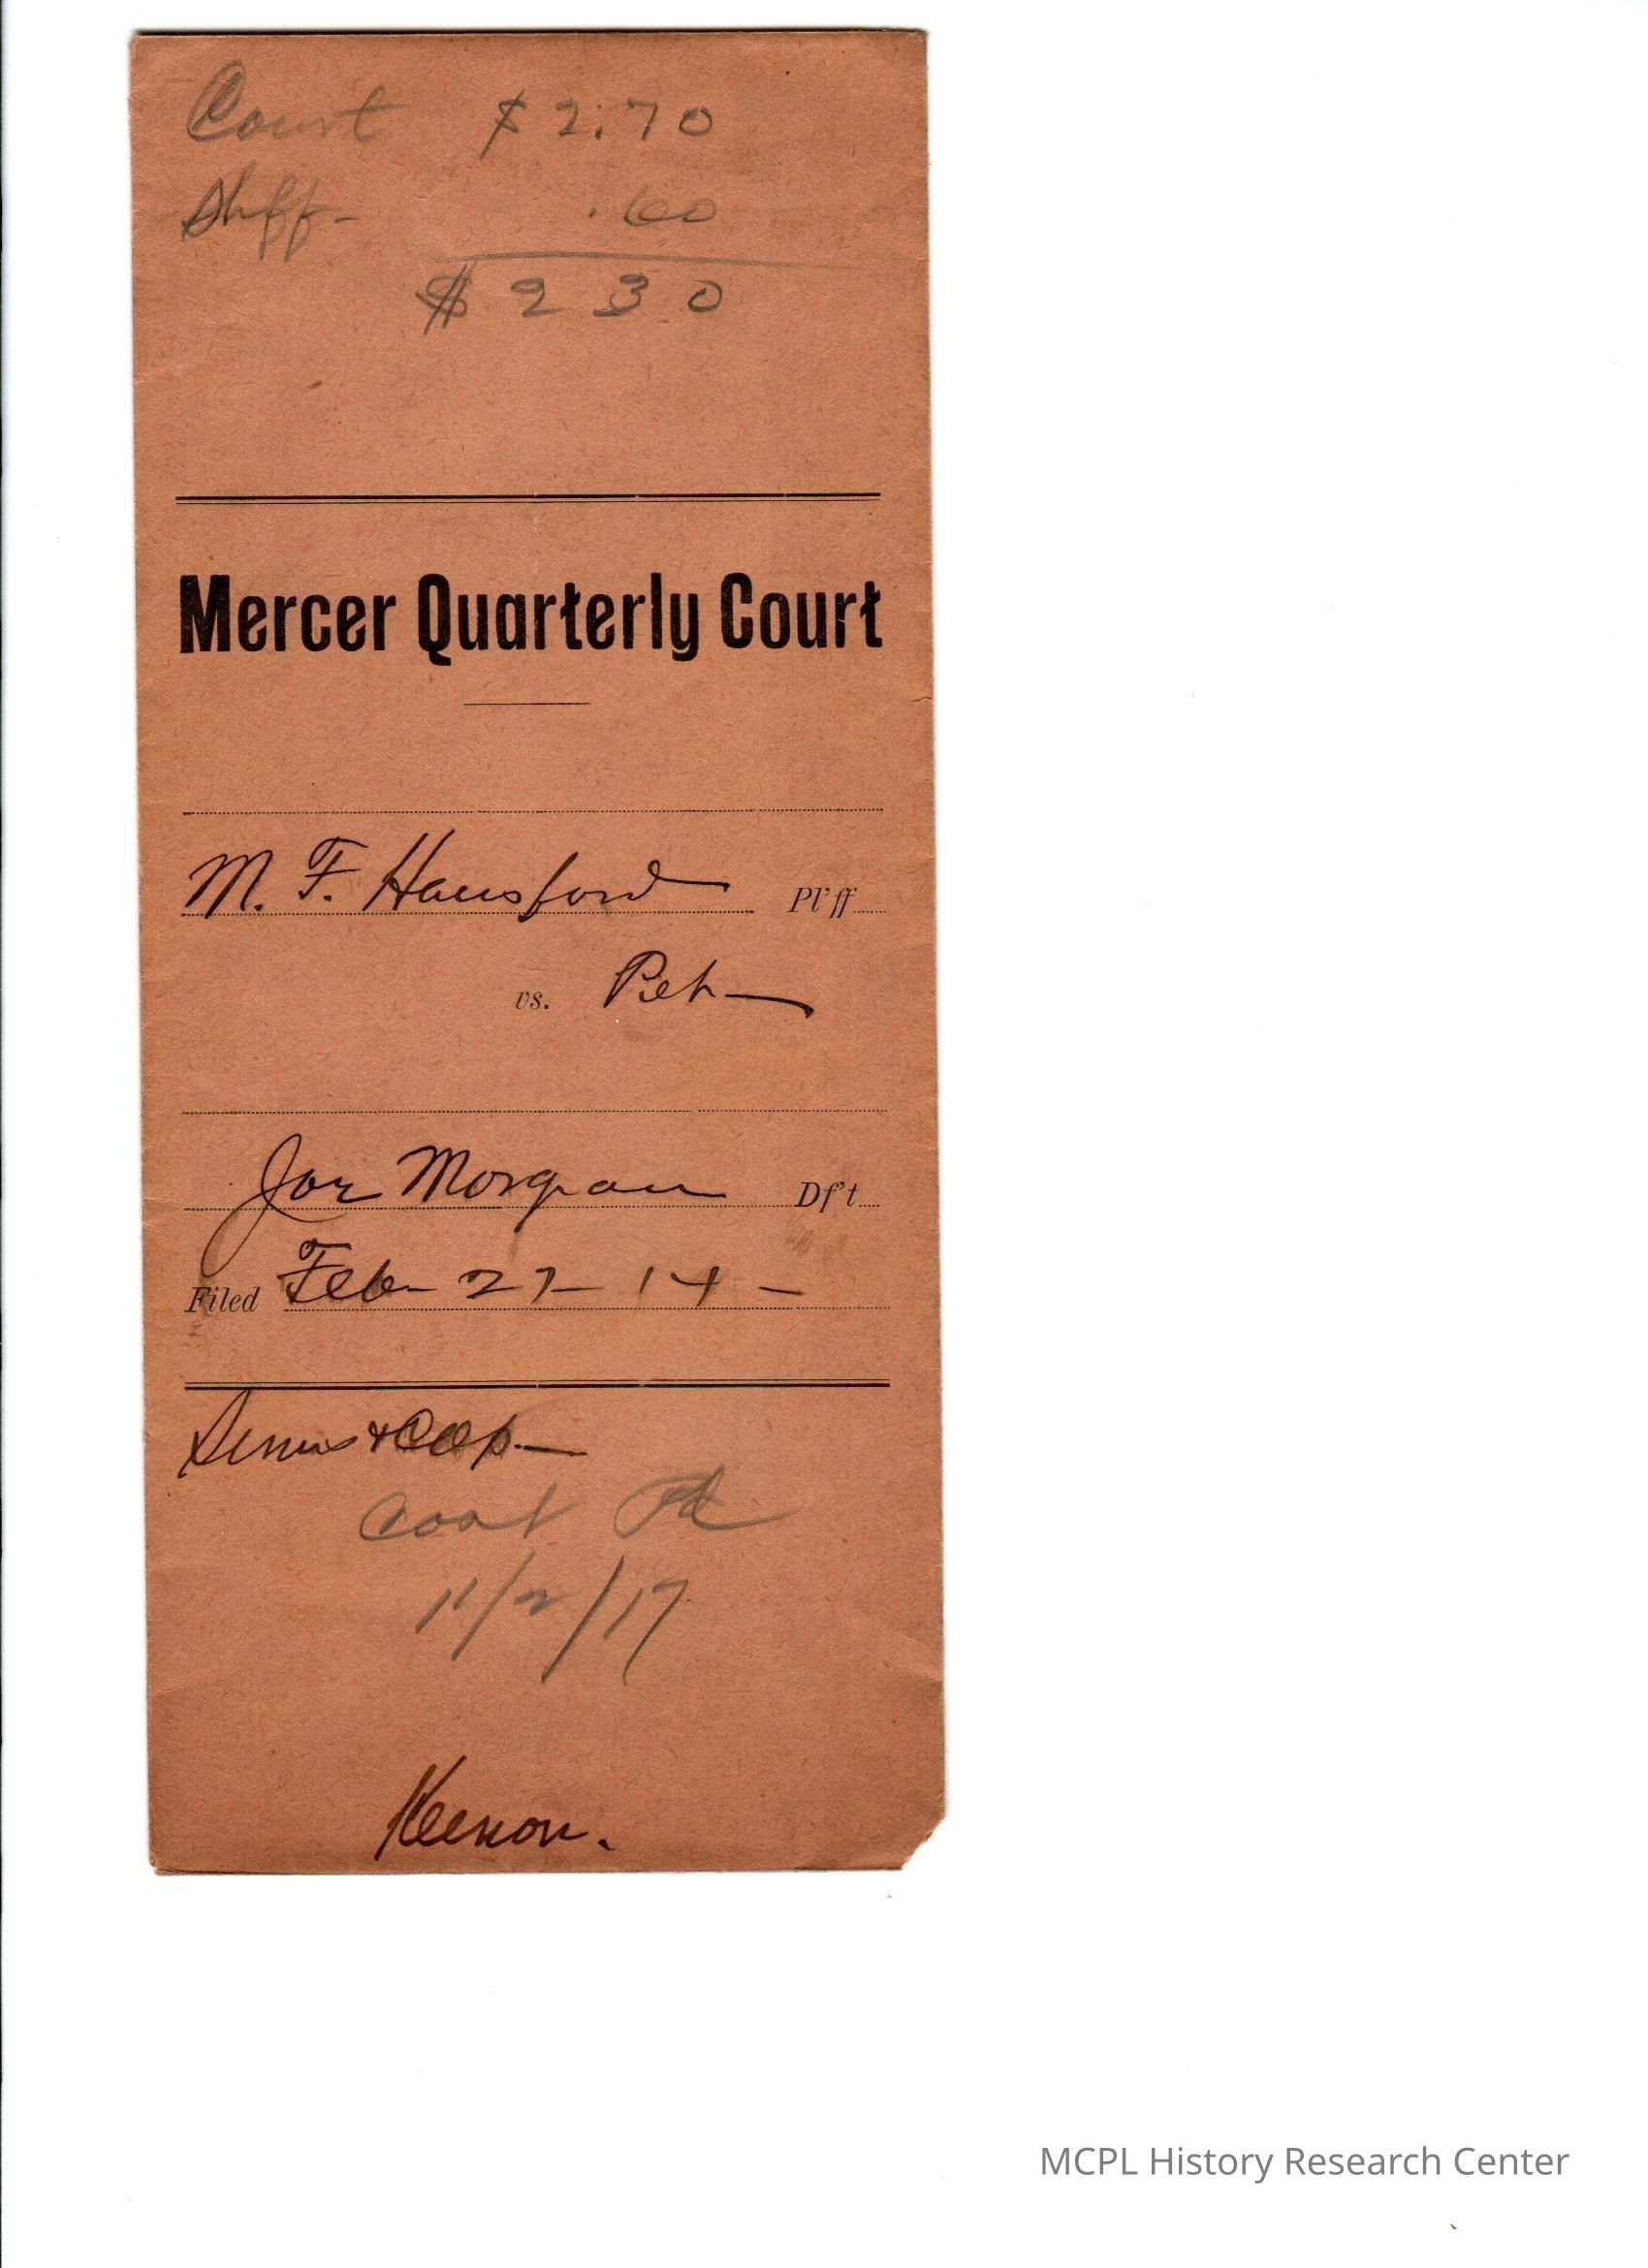 Court $2.70
Shff- .60
$ 2 3 0
Mercer Quarterly Court
M. F. Hansford Pl'ff
vs. Pet
Joe Morgan Df't
Filed Feb- 27- 14 -
& Cop-
Cost Pd
11/2/17
Keenon.
MCPL History Research Center